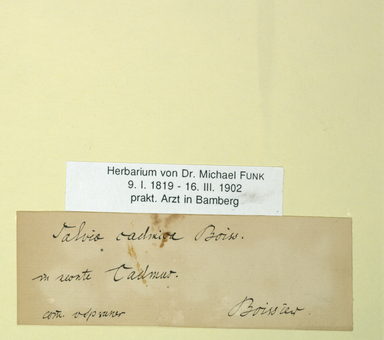 Herbarium von Dr. Michael FUNK
9. I. 1819 - 16. III. 1902
prakt. Arzt in Bamberg
Salvia cadmica Boiss.
in monte Cadmus.
com. Boissier